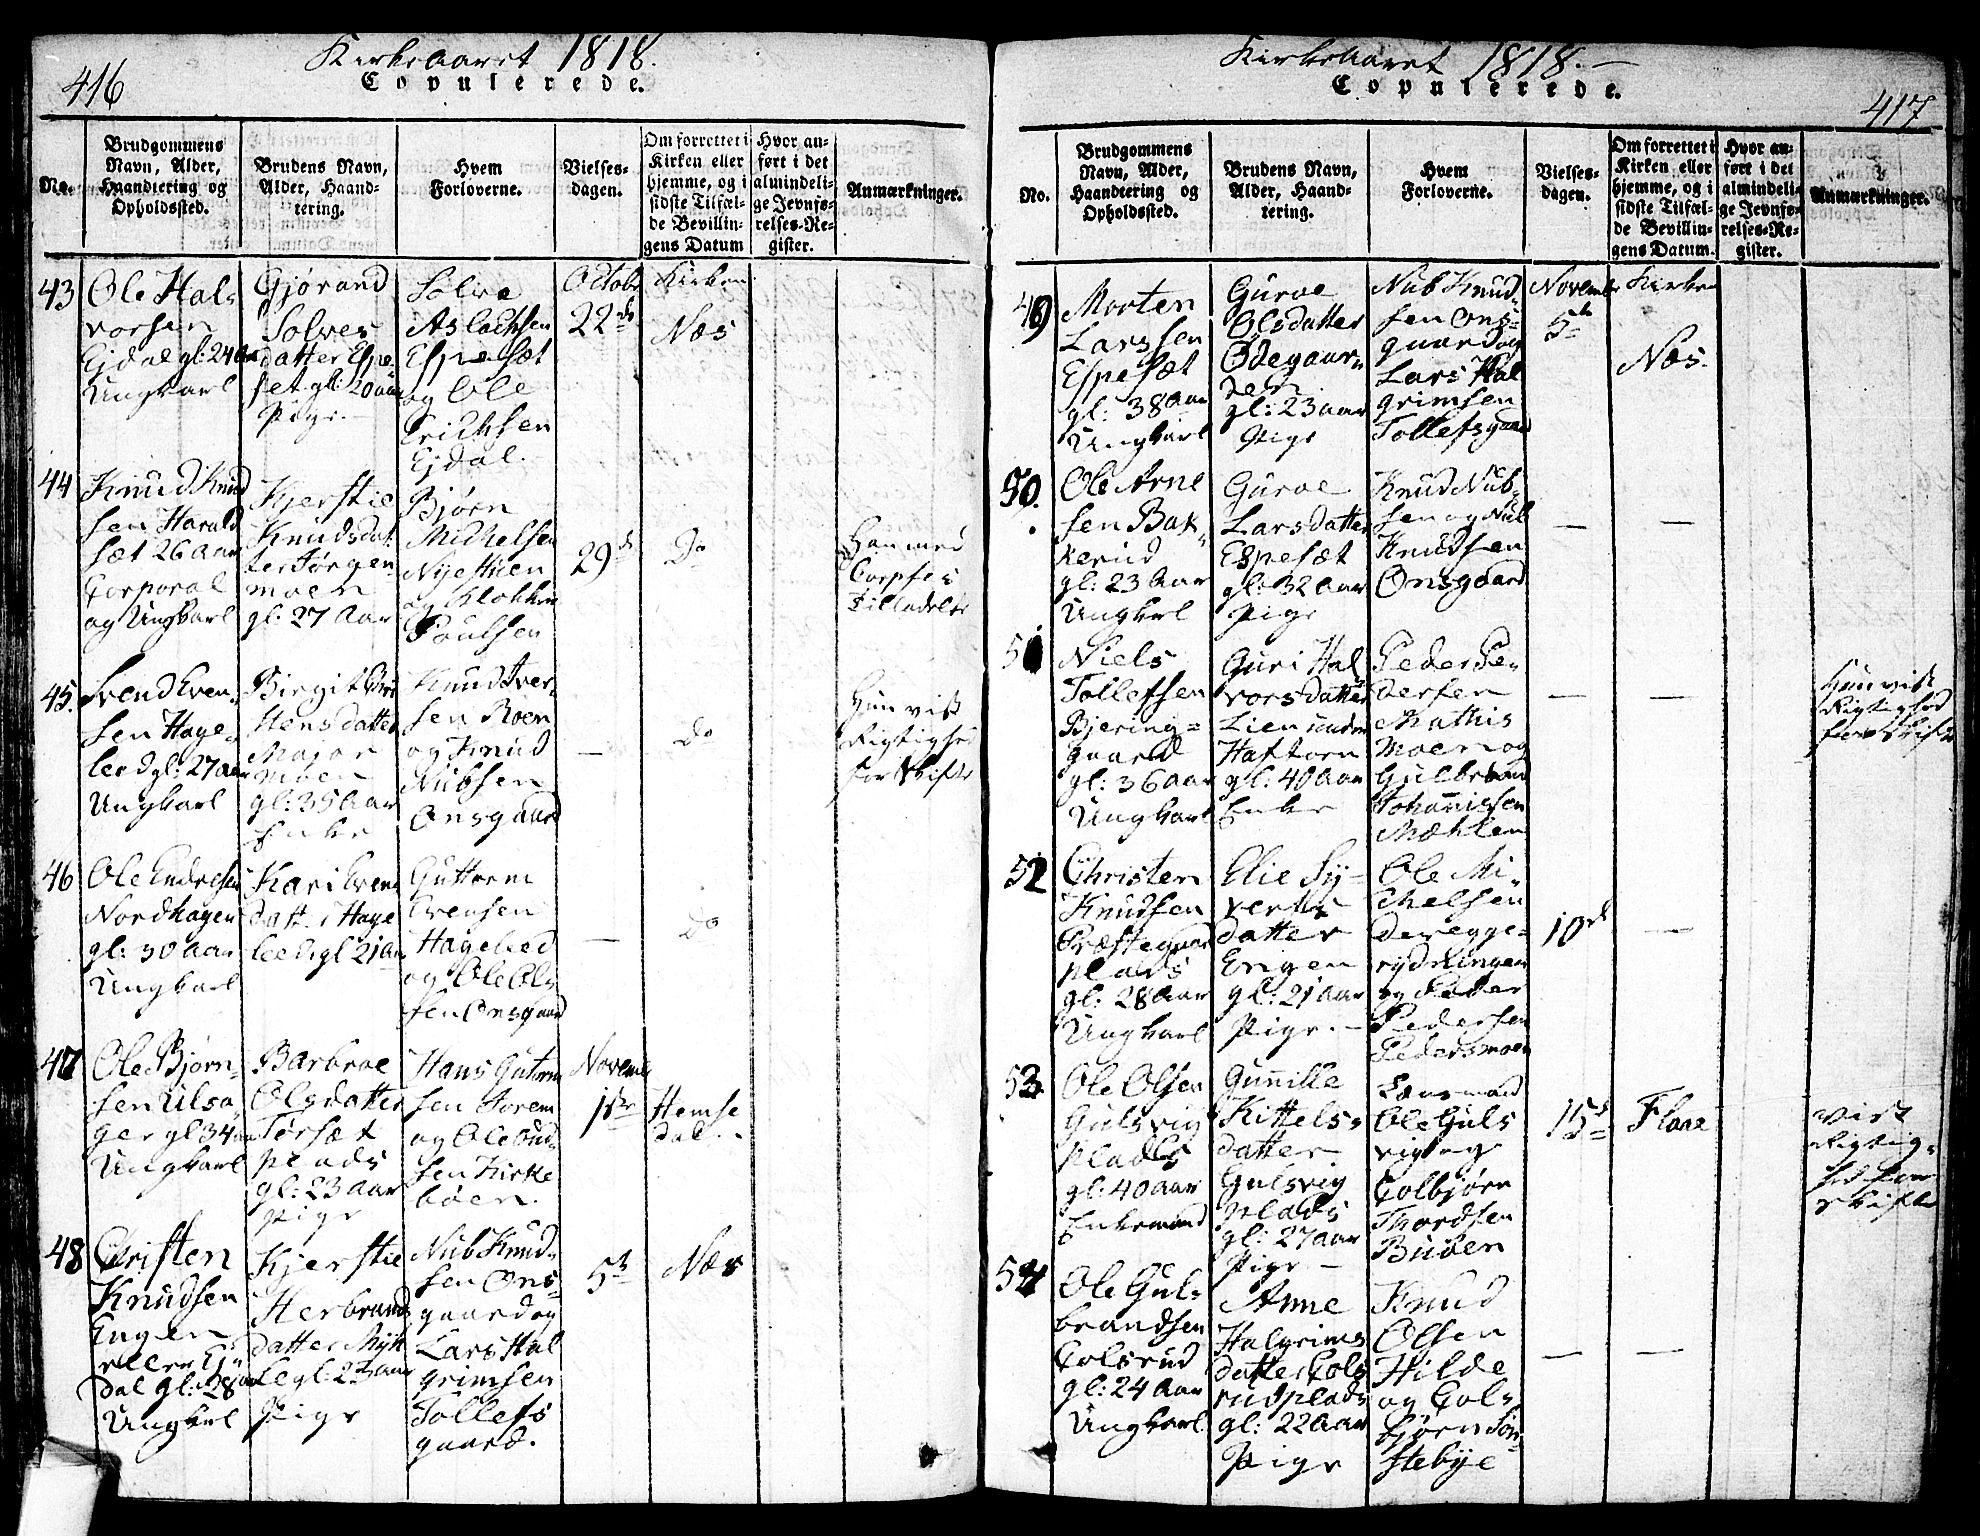 416
Kirkeaaret 1818.
Copulerede.
No.
Brudgommens
Navn, Alder,
Haandtering og
Opholdssted.
Brudens Navn,
Alder, Haand-
tering.
Hvem
Forloverne.
Vielses-
dagen.
Om forrettet i
Kirken eller
hjemme, og i
sidste Tilfæl-
de Bevillin-
gens Datum
Hvor an-
ført i det
almindeli-
ge Jevnfø-
relses-Re-
gister.
Anmærkninger.
43
Ole Hal-
vorsen
Ejdal gl: 24 Aar
Ungkarl
Gjørand
Solves
datter Espe
set gl: 20 aar
Pige.
Solve
Aslachsen
Espesæt
og Ole
Erichsen
Ejdal.
Octobr
22de
Kirken
Næs
44
Knud Knud
sen Harald
sæt 26 Aar
Corporal
og Ungkarl
Kjerstie
Knudsdat
ter Jørgen
moen
gl: 27 Aar
Bjørn
Michelsen
Nijestuen
og Klokken
Poulsen
29d
Do
Han med
Corpsets
Tilladelse
45.
Svend Even-
sen Hage-
leed gl: 27 aar
Ungkarl
Birgit
stensdatter
Major
moen
gl: 35 Aar
Enke
Knud Iver-
sen Roen
og Knud
Nubsen
Onsgaard
—
Do
Hun vist
Rigtighed
for Skifte
46
Ole Endresen
Nordhagen
gl: 30 Aar
Ungkarl
Kari Evens
datt. Hage
leed gl 21 aar
Guttorm
Evensen
Hageleed
og Ole Ols
sen Onsgaard
—
Do
47
Ole Bjørn-
sen Ulsa-
ger gl 34 aar
Ungkarl
Barbroe
Olsdatter
Torsæt
plads
gl: 23 aar
Pige
Hans Gutorm
sen Torem
og Ole Gud-
sen Kirke
böen.
Novemb
1ste
Hemse
dal.
48
Christen
Knudsen
Engen
eller Ej
dal gl: 28 aar
Ungkrl
Kjerstie
Herbrands
datter Myk
le gl: 23 aar
Pige
Nub Knud-
sen Ons-
gaard og
Lars Hal
grimsen
Tollefs
gaard.
5te
Næs
Kirkeaaret 1818.
Copulerede.
417
No.
Brudgommens
Navn, Alder,
Haandtering og
Opholdssted.
Brudens Navn,
Alder, Haand-
tering.
Hvem
Forloverne.
Vielses-
dagen.
Om forrettet i
Kirken eller
hjemme, og i
sidste Tilfæl-
de Bevillin-
gens Datum.
Hvor an-
ført i det
almindeli-
ge Jevnfø-
relses-Re-
gister.
Anmærkninger.
49
Morten
Larssen
Espesæt
gl: 38 Aar
Ungkarl
Guroe
Olsdatter
Ødegaar-
den
gl: 23 aar
Pige
Nub Knud-
sen Ons-
gaard og
Lars Hal
grimsen
Tollefsgaard
November
5te
Kirken
Næs.
50.
Ole Arne
sen Bak-
kerud
gl: 23 Aar
Ungkarl
Guroe
Larsdatter
Espesæt
gl: 32 aar
Pige
Knud Nub-
sen og Nub
Knudsen
Onsgaard
—
—
51
Niels
Tollefsen
Bjering-
gaard
gl: 36 aar
Ungkarl
Guri Hal
vorsdatter
Lien under
Haftorn
gl: 40 Aar
Enke
Peder Pe-
dersen
Mathis
moen og
Gulbrand
Johannissen
Mæhlen
—
—
Hun vist
Rigtighed
for Skifte
52
Christen
Knudsen
Præstegaard
plads
gl: 28 Aar
Ungkarl
Elie Sy-
verts
datter
Engen
gl: 21 Aar
Pige. —
Ole Mi-
chelsen
Deregge-
rydningen
og Peder
Pedersen
Pedersmoen
10de
—
53
Ole Olsen
Gulsvig
plads
gl: 40 aar
Enkemand
Gunnille
Kittels-
datter
Gulsvig
plads
gl: 27 aar
Pige —
Lænsmand
Ole Guls
vig og
Colbjørn
Thordsen
Buøen
15de
Flaae
Vist
Rigtig-
hed for
Skifte
54
Ole Gul-
brandsen
Colsrud
gl: 24 Aar
Ungkarl
Anne
Halgrims
datter Cols
rudplads
gl: 22 Aar
Pige
Knud
Olsen
Hilde
og Col-
bjørn Søn-
stebye
—
—